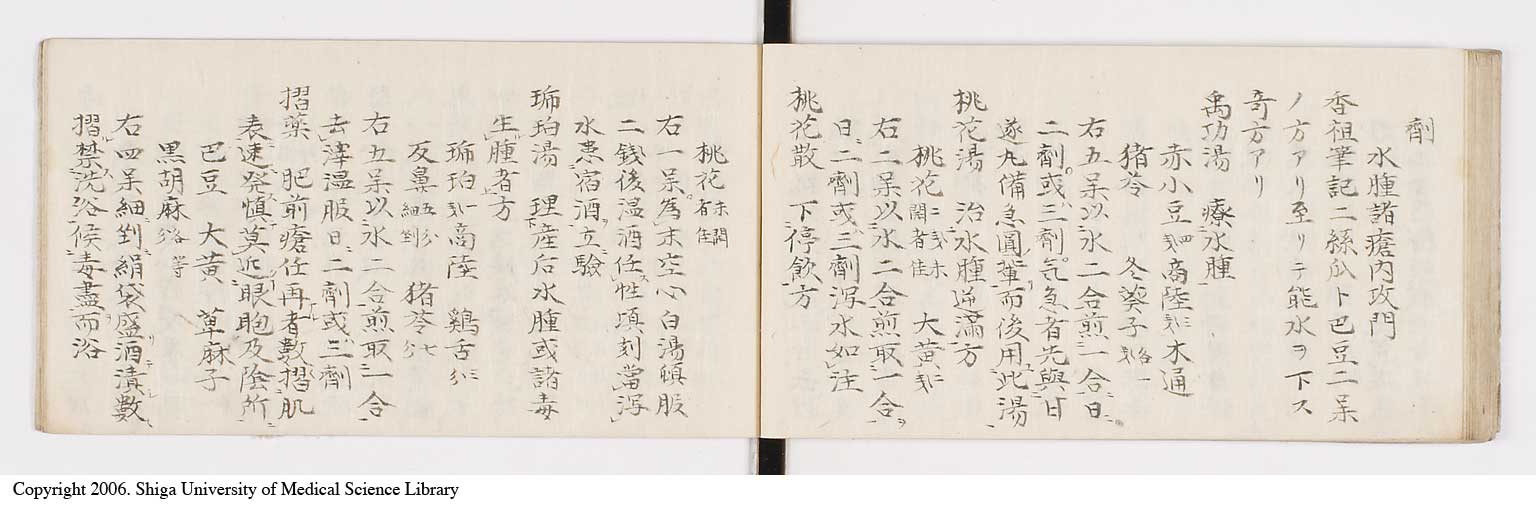 劑
水腫諸瘡內攻門
香祖筆記二絲瓜ト巴豆二呆
ノ方アリ至リテ能水ヲ下ス
奇方アリ
禹功湯 療水腫
赤小豆四戔 商陸三戔 木通
猪苓 冬葵子各一戔
右五呆以水二合煎一合日
二劑或三劑气急者先與甘
遂丸備急圓輩而後用此湯
桃花湯 治水腫滿方
桃花二戔未開者佳 大黃戔
右二呆以水二合煎取一合
日二劑或三劑泻水如注
桃花散 下停飲方
桃花未開者佳
右一呆為末空心白湯頓服
二銭後温酒任性頃刻當泻
水患宿酒立驗
琥珀湯 理産后水腫或諸毒
生腫者方
琥珀一戔 商陸 鷄舌二分
反鼻五分細剉 猪苓七分
右五呆以水二合煎取一合
去滓温服日二劑或三劑
摺薬 肥前瘡任再者數摺肌
表速発慎莫近眼胞及陰所
巴豆 大黃 草麻子
黒胡麻各等分
右四呆細剉絹袋盛酒漬數
摺禁洗浴候毒盡而浴
Copyright 2006. Shiga University of Medical Science Library